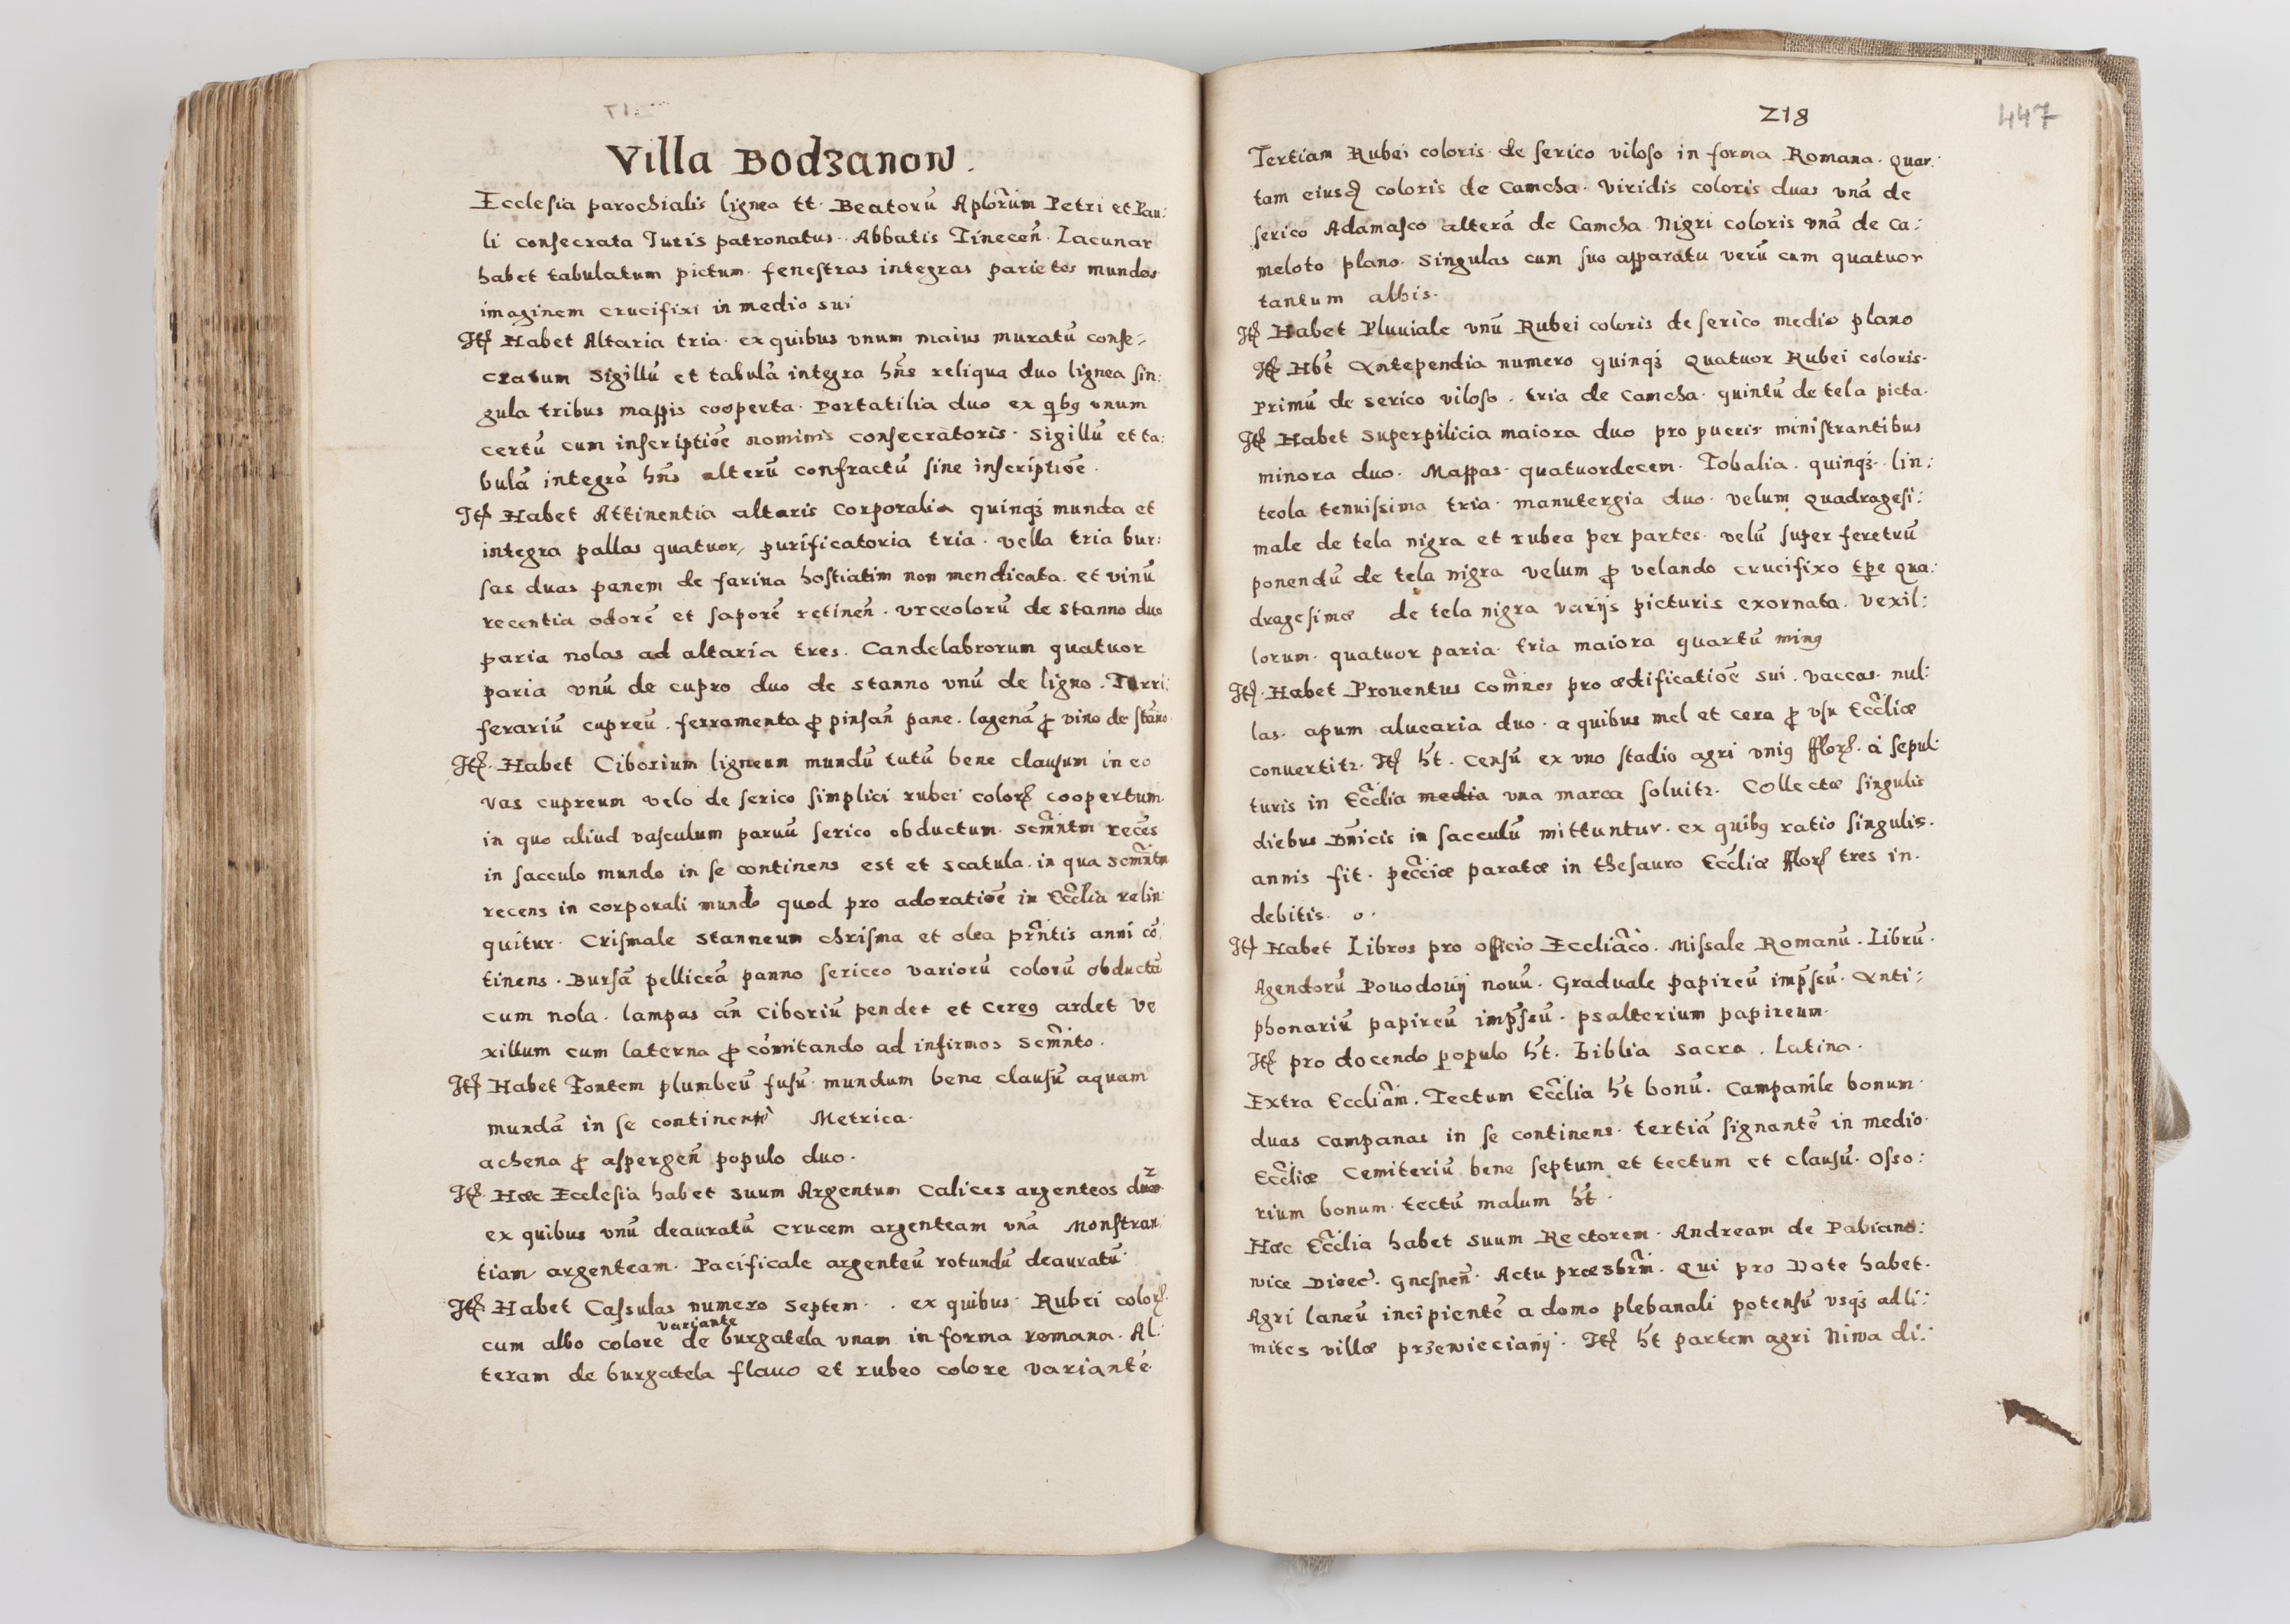 Villa Bodzanow.
Ecclesia parochialis lignea tt. Beatorū Aplōrum Petri et Pau:
li consecrata Juris patronatus Abbatis Tinecen̄. Lacunar
habet tabulatum pictum. fenestras integras parietes mundos
imaginem crucifixi in medio sui
Itē Habet Altaria tria. ex quibus vnum maius muratū conse:
cratum Sigillū et tabulā integra hn̄s reliqua duo lignea sin:
gula tribus mappis cooperta. Portatilia duo ex qībꝯ vnum
certū cum inscriptiōe nominis consecratoris. Sigillū et ta:
bulā integrā hn̄s alterū confractū sine inscriptiōe.
Itē Habet Attinentia altaris Corporalia quinqꝫ munda et
integra pallas quatuor, purificatoria tria. vella tria bur:
sas duas panem de farina hostiatim non mendicata. et vinū
recentia odorē et saporē retinen̄. Vrceolorū de stanno duo
paria nolas ad altaria tres. Candelabrorum quatuor
paria vnū de cupro duo de stanno vnū de ligno. Turri:
ferariū cupreū. ferramenta ꝓ pinsan̄ pane. lagenā ꝓ vino de stāno.
Itē. Habet Ciborium ligneum mundū tutū bene clausum in eo
vas cupreum velo de serico simplici rubei colorꝭ coopertum.
in quo aliud vasculum paruū serico obductum. Scm̄ntm recēs
in sacculo mundo in se continens est et scatula. in qua Scm̄ntm
recens in corporali mundo quod pro adoratiōe in Eccl̄ia relin:
quitur. Crismale stanneum chrisma et olea prn̄tis anni cō:
tinens. Bursā pelliceā panno sericeo variorū colorū obductā
cum nola. lampas an̄ Ciboriū pendet et cereꝯ ardet Ve
xillum cum laterna ꝓ cōmitando ad infirmos Scm̄nto.
Itē Habet Fontem plumbeū fusū. mundum bene clausū aquam
mundā in se continentē Metrica.
achena ꝓ aspergen̄ populo duo.
Itē. Hæc Ecclesia habet suum Argentum Calices argenteos duos 2
ex quibus vnū deauratū Crucem argenteam vnā Monstran:
tiam argenteam. Pacificale argenteū rotundū deauratū.
Itē. Habet Cassulas numero septem. . ex quibus. Rubei colorꝭ.
cum albo colore variante de burgatela vnam in forma romana. Al:
teram de burgatela flauo et rubeo colore variantē.
218
447
Tertiam Rubei coloris de serico viloso in forma Romana. Quar:
tam eiusd̄ coloris de Camcha. viridis coloris duas vnā de
serico Adamasco alterā de Camcha Nigri coloris vnā de ca:
meloto plano. Singulas cum suo apparatu verū cum quatuor
tantum albis.
Itē Habet Pluuiale vnū Rubei coloris de serico medio plano
Itē Hbt̄ Antependia numero quinqꝫ Quatuor Rubei coloris.
Primū de serico viloso. tria de Camcha. quintū de tela picta.
Itē Habet Superpilicia maiora duo pro pueris ministrantibus
minora duo. Mappas quatuordecem. Tobalia. quinqꝫ. lin:
teola tenuissima tria. manutergia duo. velum Quadragesi:
male de tela nigra et rubea per partes. velū super feretrū
ponendū de tela nigra velum ꝓ velando crucifixo tp̄e Qua:
dragesimæ de tela nigra varijs picturis exornata. Vexil:
lorum. quatuor paria. tria maiora quartū minꝯ
Itē. Habet Prouentus com̄nes pro ædificatiōe sui. vaccas. nul:
las. apum aluearia duo. a quibus mel et cera ꝓ vsu Eccl̄iæ
conuertitr. Itē ht̄. Censū ex vno stadio agri vniꝯ fflorꝭ. á sepul:
turis in Eccl̄ia media vna marca soluitr. Collectæ singulis
diebus Dn̄icis in sacculū mittuntur. ex quibꝯ ratio singulis.
annis fit. pecc̄iæ paratæ in thesauro Eccl̄iæ fflorꝭ tres in.
debitis. o.
Itē Habet Libros pro officio Eccliāco. Missale Romanū. Librū.
Agendorū Pouodouij nouū. Graduale papireū imp̄ssū. Anti:
phonariū papireū imp̄ssū. psalterium papireum.
Itē pro docendo populo ht̄. Biblia sacra. Latina.
Extra Eccliām. Tectum Eccl̄ia ht̄ bonū. Campanile bonum.
duas campanas in se continens. tertiā signantē in medio.
Eccl̄iæ Cemiteriū bene septum et tectum et clausū. Osso:
rium bonum. tectū malum ht̄.
Hæc Eccl̄ia habet suum Rectorem. Andream de Pabiano:
wice Dioec̄. Gnesnen̄. Actu præsbrm̄. Qui pro Dote habet.
Agri laneū incipientē a domo plebanali potensū vsqꝫ ad li:
mites villæ przewiecianij. Itē ht̄ partem agri Niwa di: